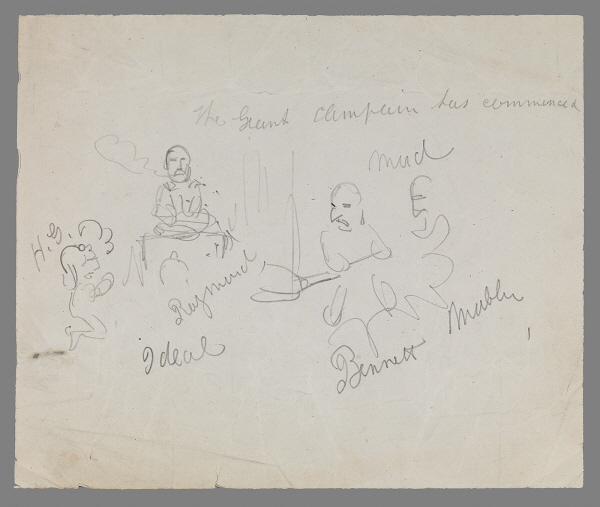 The Grant Campain has commenced
Mud
H.G.
Raymond
Ideal
Bennett